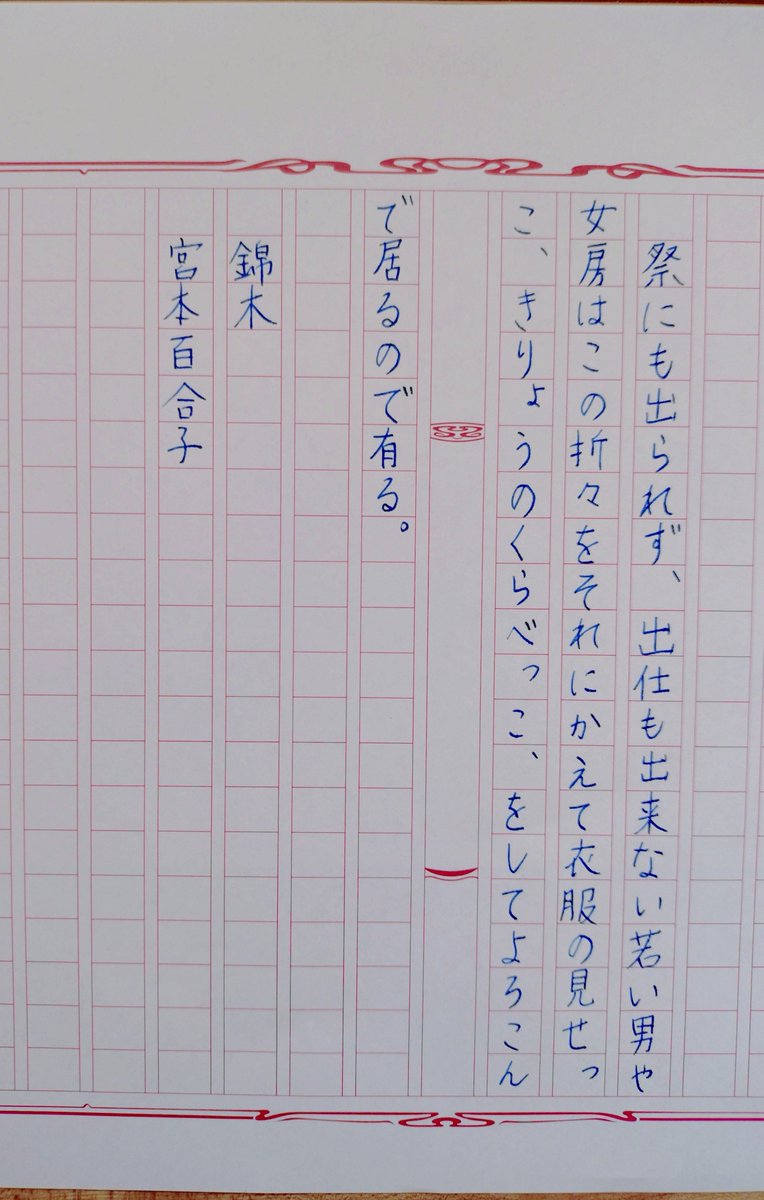 祭にも出られず、出仕も出来ない若い男や
女房はこの折々をそれにかえて衣服の見せっ
こ、きりょうのくらべっこ、をしてよろこん
で居るので有る。
錦木
宮本百合子